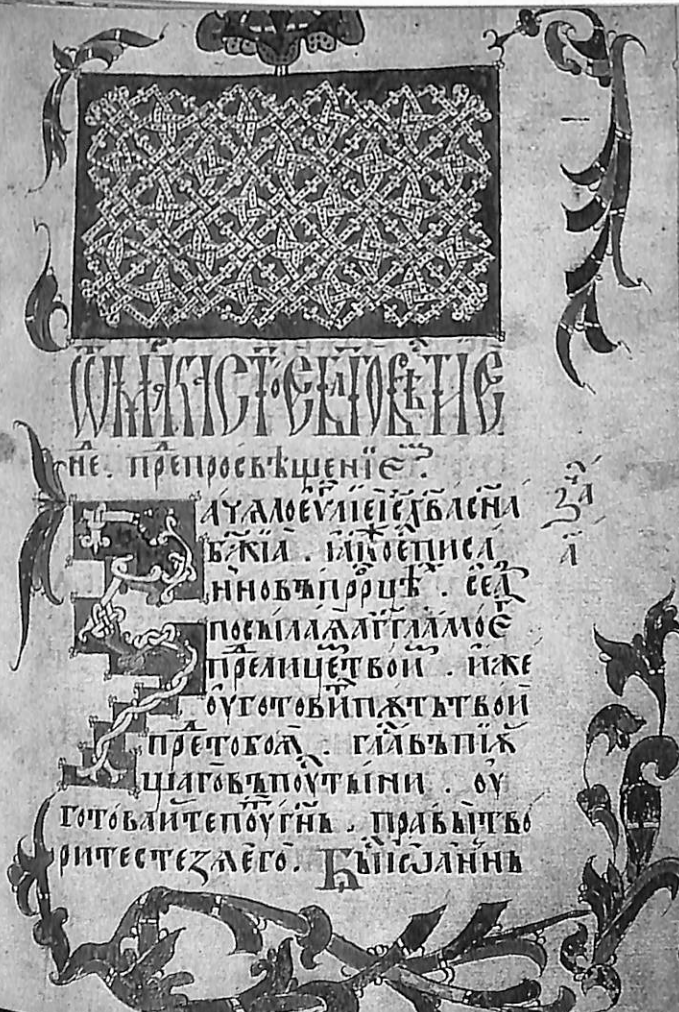 ѿ мр҃ка ст҃ое бл҃говѣстїе
не. прⷣепросвѣщенїеⷨ.
Зачѧлоеѵⷢ҇лїеіⷭ҇х҃всⷭ҇на
бж҃їѧ. ꙗ҆коеⷭ҇писа
ннѡвъпрⷪ҇рцѣⷯ. сеаⷥ
посылаѧаг҃гламоеⷢ
прⷣелицеⷨтвоиⷨ. иже
ꙋготовиⷮпѫтьтвой
прⷣетобоѫ. глаⷭ҇въпїѫ
щаговъпоуⷭ҇тыни. оу
готоваитепоуⷮгн҃ь. правытво
ритестезѧего. Бы́ⷭ҇їѡаннь
заⷱ
а҃